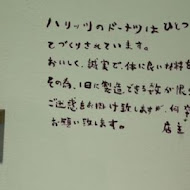 ハリッツのドーナツはひとつ
てづくりされています。
おいしく、誠実で、体に良い材料を
その為、1日に製造できる数が限
ご迷惑をお掛け致しますが、何卒
お願い致します。
店主